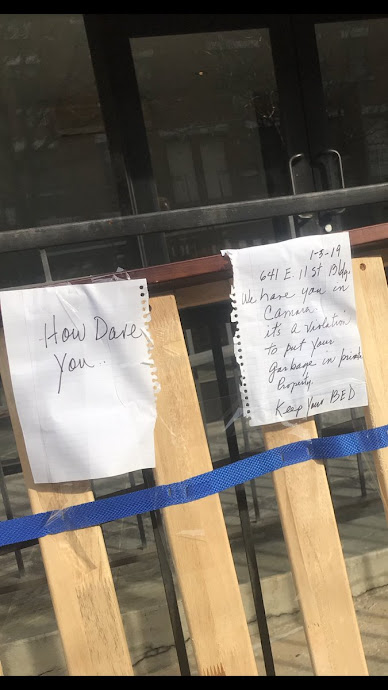 How Dare
You..
1-8-19
641 E 11 St Bldg.
We have you in
Camara
its a violation
to put your
garbage in private
Property.
Keep Your BED